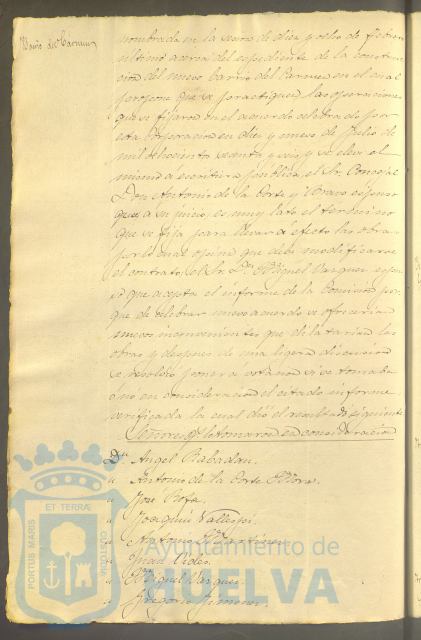 Barrio del Carmen
nombrada en la sesion de diez y ocho de febrero
último acerca del espediente de la construc-
cion del nuevo barrio del Carmen en el cual
propone que se practiquen las operaciones
que se fijaron en el acuerdo celebrado por
esta corporacion en diez y nueve de Julio de
mil ochocientos setenta y seis, y se eleve el
mismo a escritura pública, el Sr. Concejal
Don Antonio de la Corte y Bravo espuso
que a su juicio, es muy lato el término
que se fija para llevar a efecto las obras
por lo cual opina que debe modificarse
el contrato, el Sr. Dn. Miguel Vazquez espu-
so que acepta el informe de la Comision por-
que de celebrar nuevo acuerdo se ofrecerian
nuevos inconvenientes que dilatarian las
obras y despues de una ligera discusion
se resolvió poner a votacion si se tomaba
ó no en consideracion el citado informe
verificada la cual dió el resultado siguiente
Señores q. lo tomaron en consideracion
Dn. Angel Rabadan.
" Antonio de la Corte
" José
" Joaquin
" Antonio Martinez
" Juan
" Miguel Vazquez
" Gregorio Jimenez
PORTUS MARIS
ET TERRAE
CUSTODIA
Ayuntamiento de
HUELVA